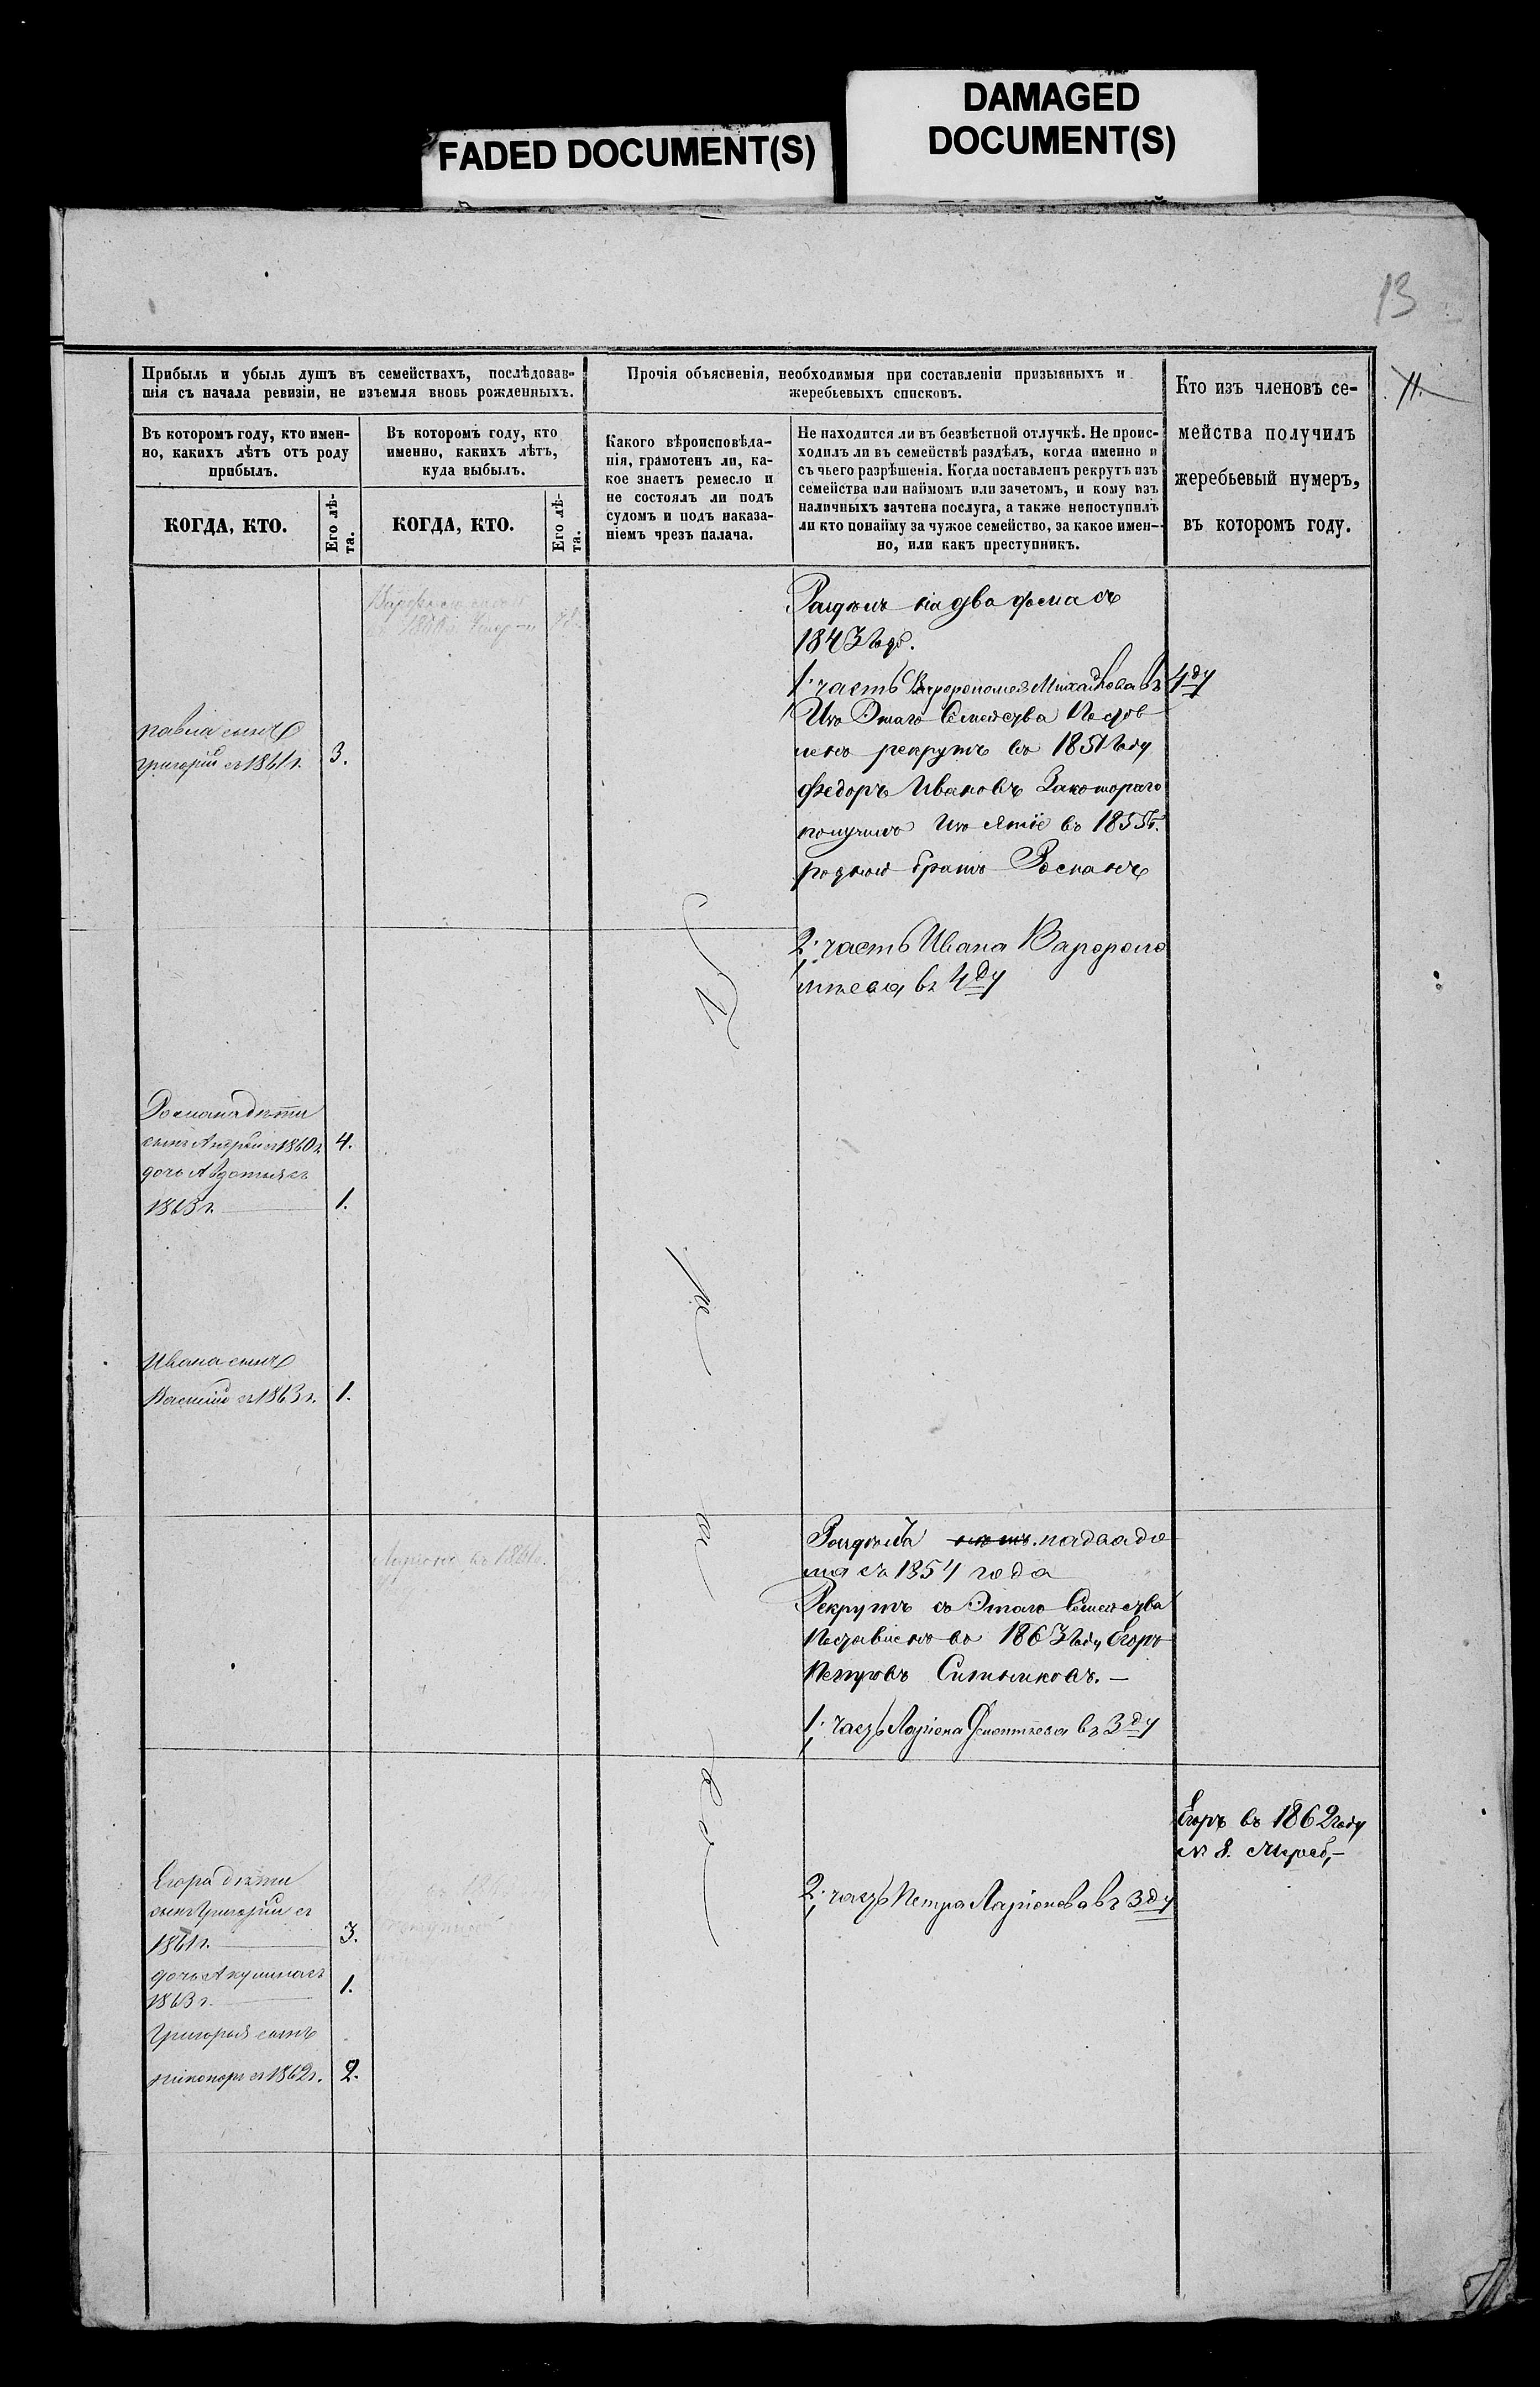 FADED DOCUMENT(S)
DAMAGED
DOCUMENT(S)
13
11.
Прибыль и убыль душъ въ семействахъ, послѣдовав-
шія съ начала ревизіи, не изъемля вновь рожденныхъ.
Въ которомъ году, кто имен-
но, какихъ лѣтъ отъ роду
прибылъ.
КОГДА, КТО.
Его лѣ-
та.
Въ которомъ году, кто
именно, какихъ лѣтъ,
куда выбылъ.
КОГДА, КТО.
Его лѣ-
та.
Прочія объясненія, необходимыя при составленіи призывныхъ и
жеребьевыхъ списковъ.
Какого вѣроисповѣда-
нія, грамотенъ ли, ка-
кое знаетъ ремесло и
не состоялъ ли подъ
судомъ и подъ наказа-
ніемъ чрезъ палача.
Не находится ли въ безвѣстной отлучкѣ. Не проис-
ходилъ ли въ семействѣ раздѣлъ, когда именно и
съ чьего разрѣшенія. Когда поставленъ рекрутъ изъ
семейства или наймомъ или зачетомъ, и кому изъ
наличныхъ зачтена послуга, а также непоступилъ
ли кто понайму за чужое семейство, за какое имен-
но, или какъ преступникъ.
Кто изъ членовъ се-
мейства получилъ
жеребьевый нумеръ,
въ которомъ году.
на два дома съ
1843 году.
1. часть Варфоломея Михайлова въ 4ду
Изъ Этаго Семейства Постав
ленъ рекрутъ въ 1851 году
Федоръ Ивановъ Закотораго
получилъ въ 1855г.
родной братъ Романъ
2. часть Ивана Варфоло
мѣева въ 4ду
павла сынъ
григорій съ 1861 г. 3.
Романа дѣти
сынъ Андрей съ 1860 г. 4.
дочь Авдотья съ
1863 г. 1.
Ивана сынъ
Василий съ 1863 г. 1.
Ларіонъ въ 1861
надва до
ма съ 1854 года
Рекрутъ съ Этаго Семейства
Поставленъ въ 1863 году Егоръ
Петровъ
1. часть Ларіона въ 3ду
Егоръ въ 1862 году
№ 8.
2. часть Петра Ларіонова въ 3ду
Егора дѣти
сынъ Григорий съ
1861 г. 3.
дочь Акулина съ
1863 г. 1.
Григорья сынъ
никоноръ съ 1862 г. 2.